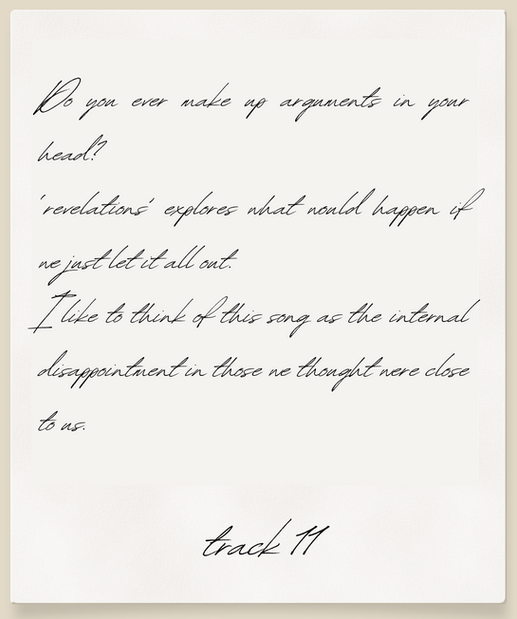 Do you ever make up arguments in your
head?
'revelations' explores what would happen if
we just let it all out.
I like to think of this song as the internal
disappointment in those we thought were close
to us.
track 11